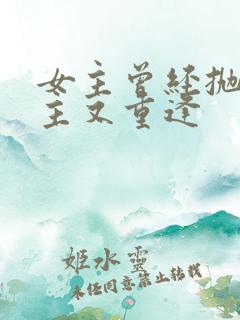 女主曾经抛
主又重逢
姬水靈
未经同意禁止转载